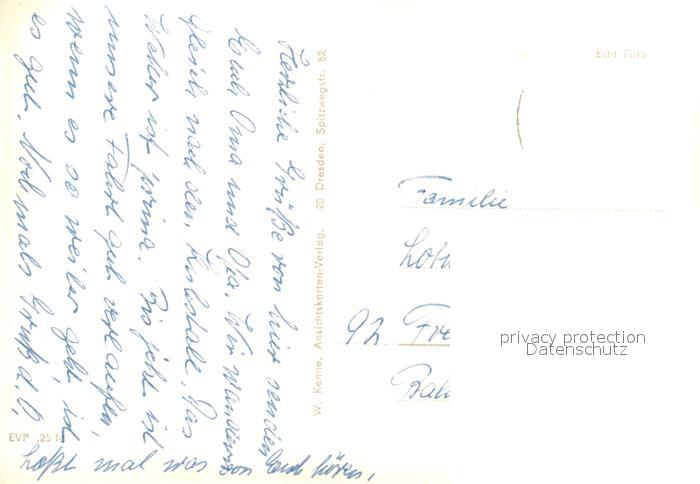 Herzliche Grüße von hier senden
Euch Oma und Opa. Wir wandern
gleich nach der Kuhstall. Das
Wetter ist prima. Bis jetzt ist
unsere Fahrt gut verlaufen,
wenn es so weiter geht, ist
es gut. Nochmals Gruß d. O,
Laßt mal was von Euch hören,
W. Kenne, Ansichtskarten-Verlag, 20 Dresden, Spitzwegstr. 52
EVP ,25 M
Echt Foto
Familie
Loth
92 Fre
privacy protection
Datenschutz